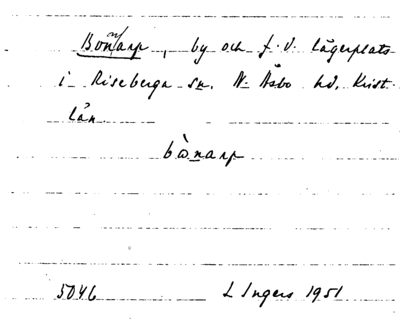 Bonnarp, by och f. d. lägerplats
i Riseberga sn. N. Åsbo hd, Krist.
län.
bònarp
5046 L Ingers 1951